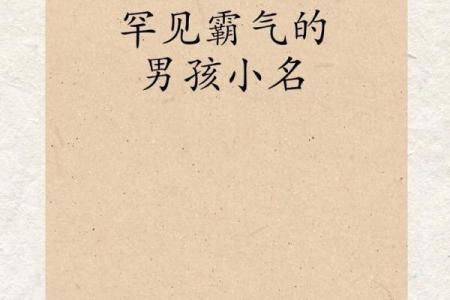 罕见霸气的
男孩小名